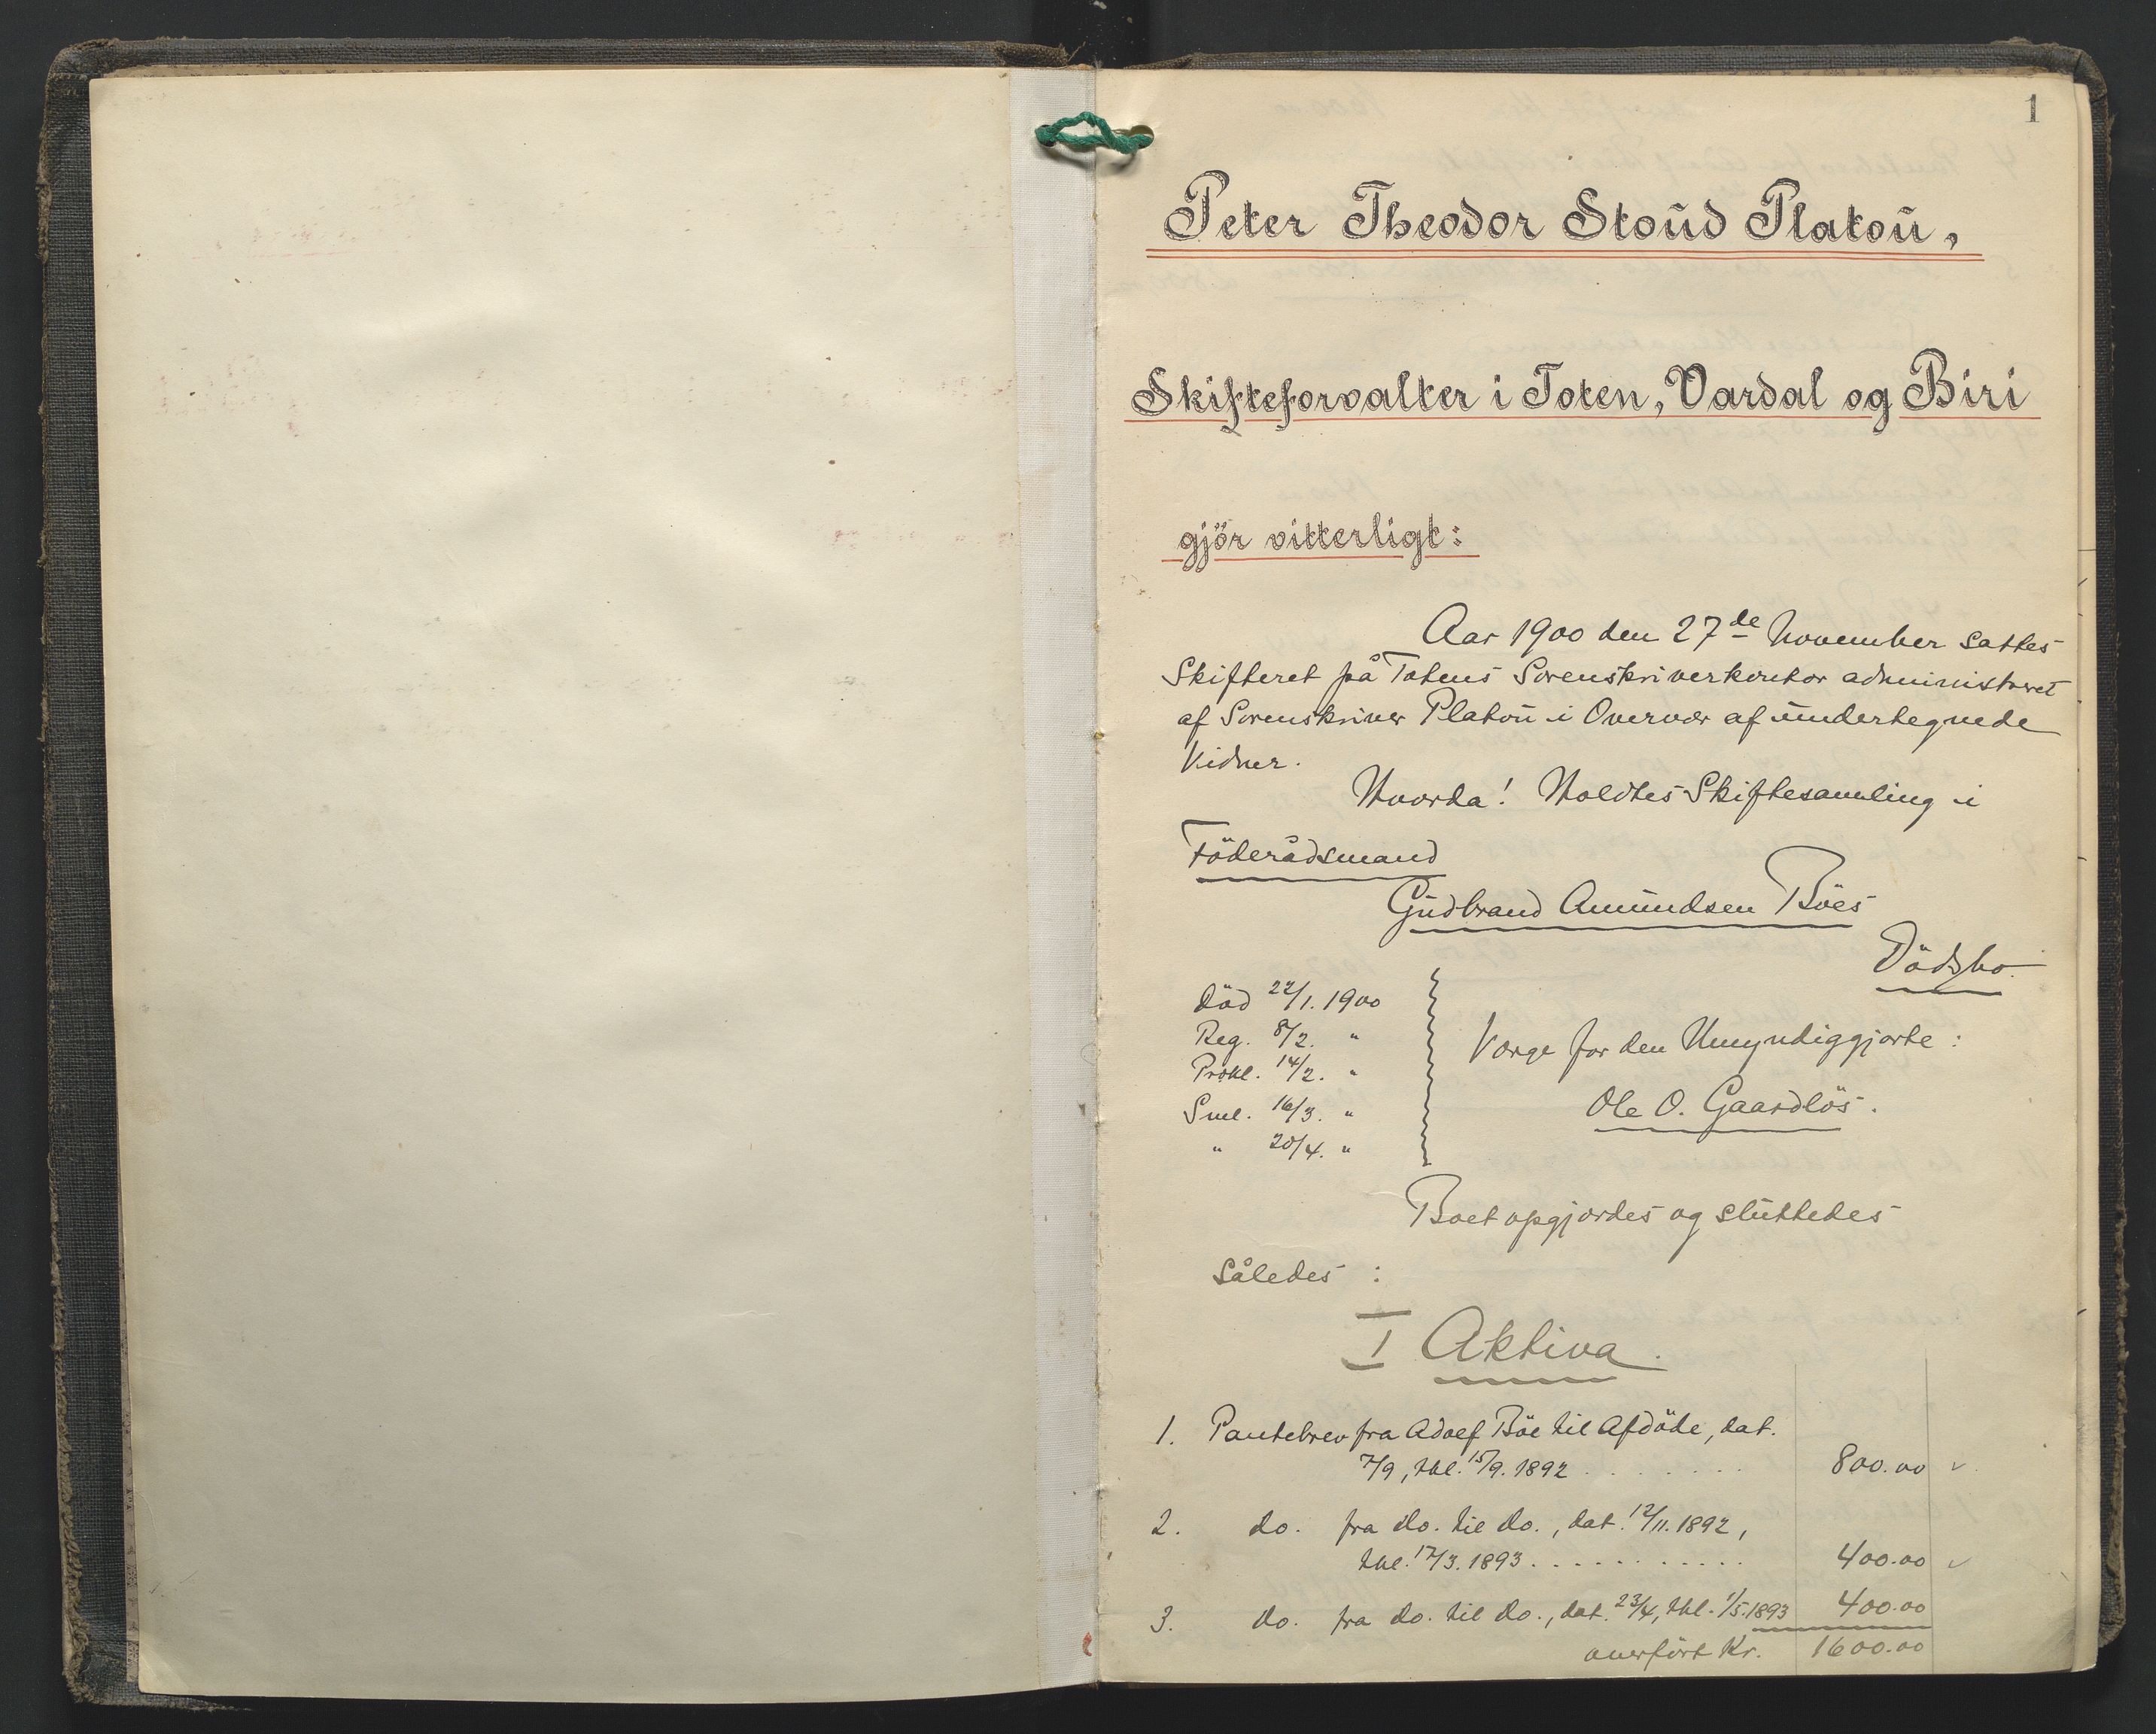 1
Peter Theodor Stoŭd Platoŭ,
Skifteforvalter i Toten, Vardal og Biri
gjör vitterligt:
Aar 1900 den 27de November sattes
Skifteret på Totens Sorenskriverkontor administreret
af Sorenskriver Platoŭ i Overvær af ŭndertegnede
Vidner.
Hvorda! Holdtes Skiftesamling i
Föderådsmand
Gŭdbrand Amŭndsen Böes
Dödsbo.
Död 22/1. 1900
Reg. 8/2. "
Prokl. 14/2. "
Sml. 16/3. "
" 20/4. "
Værge for den Umyndiggjorte:
Ole O. Gaardlös.
Boet opgjordes og slŭttedes
således :
I Aktiva.
1. Pantebrev fra Adolf Böe til Afdöde, dat.
7/9, thl. 15/9. 1892 . . . . . . . 800.00 ✓
2. do. fra do. til do., dat. 12/11. 1892,
thl. 17/3. 1893 . . . . . . . . . . . 400.00 ✓
3. do. fra do. til do., dat. 23/4, thl. 1/5. 1893 400.00
overfört Kr. 1600.00